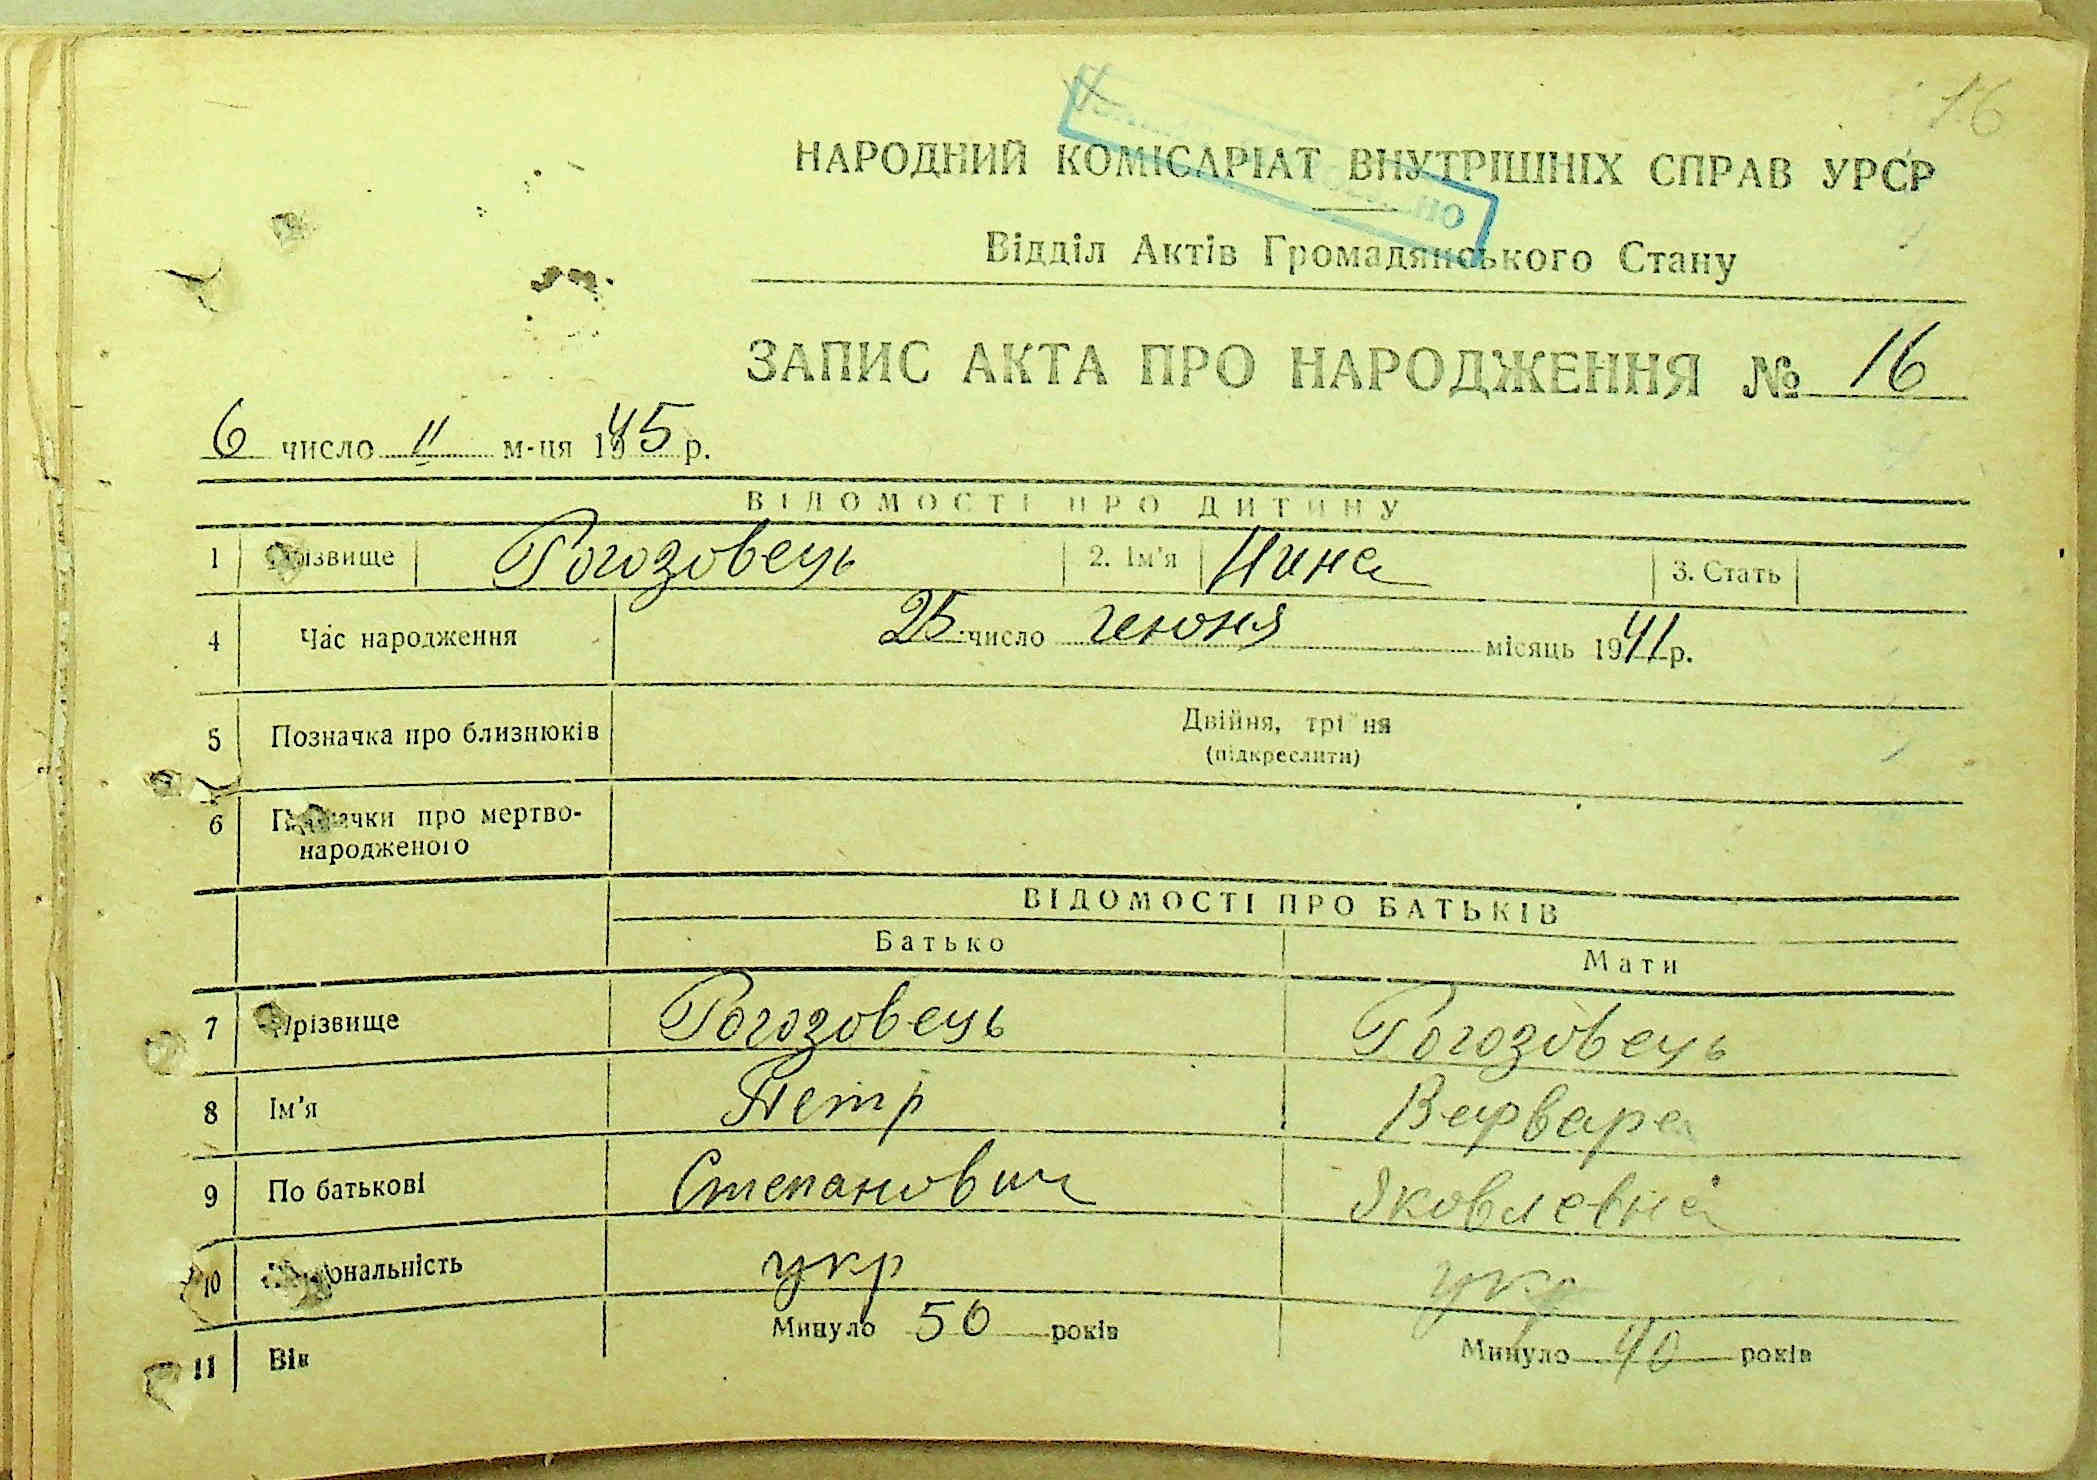 16
НАРОДНИЙ КОМІСАРІАТ ВНУТРІШНІХ СПРАВ УРСР
Відділ Актів Громадянського Стану
ЗАПИС АКТА ПРО НАРОДЖЕННЯ № 16
6 число II м-ця 1945 р.
ВІДОМОСТІ ПРО ДИТИНУ
1 Прізвище Рогозовець 2. Ім'я Нина 3. Стать
4 Час народження 25 число июня місяць 1941 р.
5 Позначка про близнюків Двійня, трійня
(підкреслити)
6 Позначки про мертво-
народженого
ВІДОМОСТІ ПРО БАТЬКІВ
Батько Мати
7 Прізвище Рогозовець Рогозовець
8 Ім'я Петр Варвара
9 По батькові Степанович Яковлевна
10 Національність укр укр
11 Вік Минуло 50 років Минуло 40 років